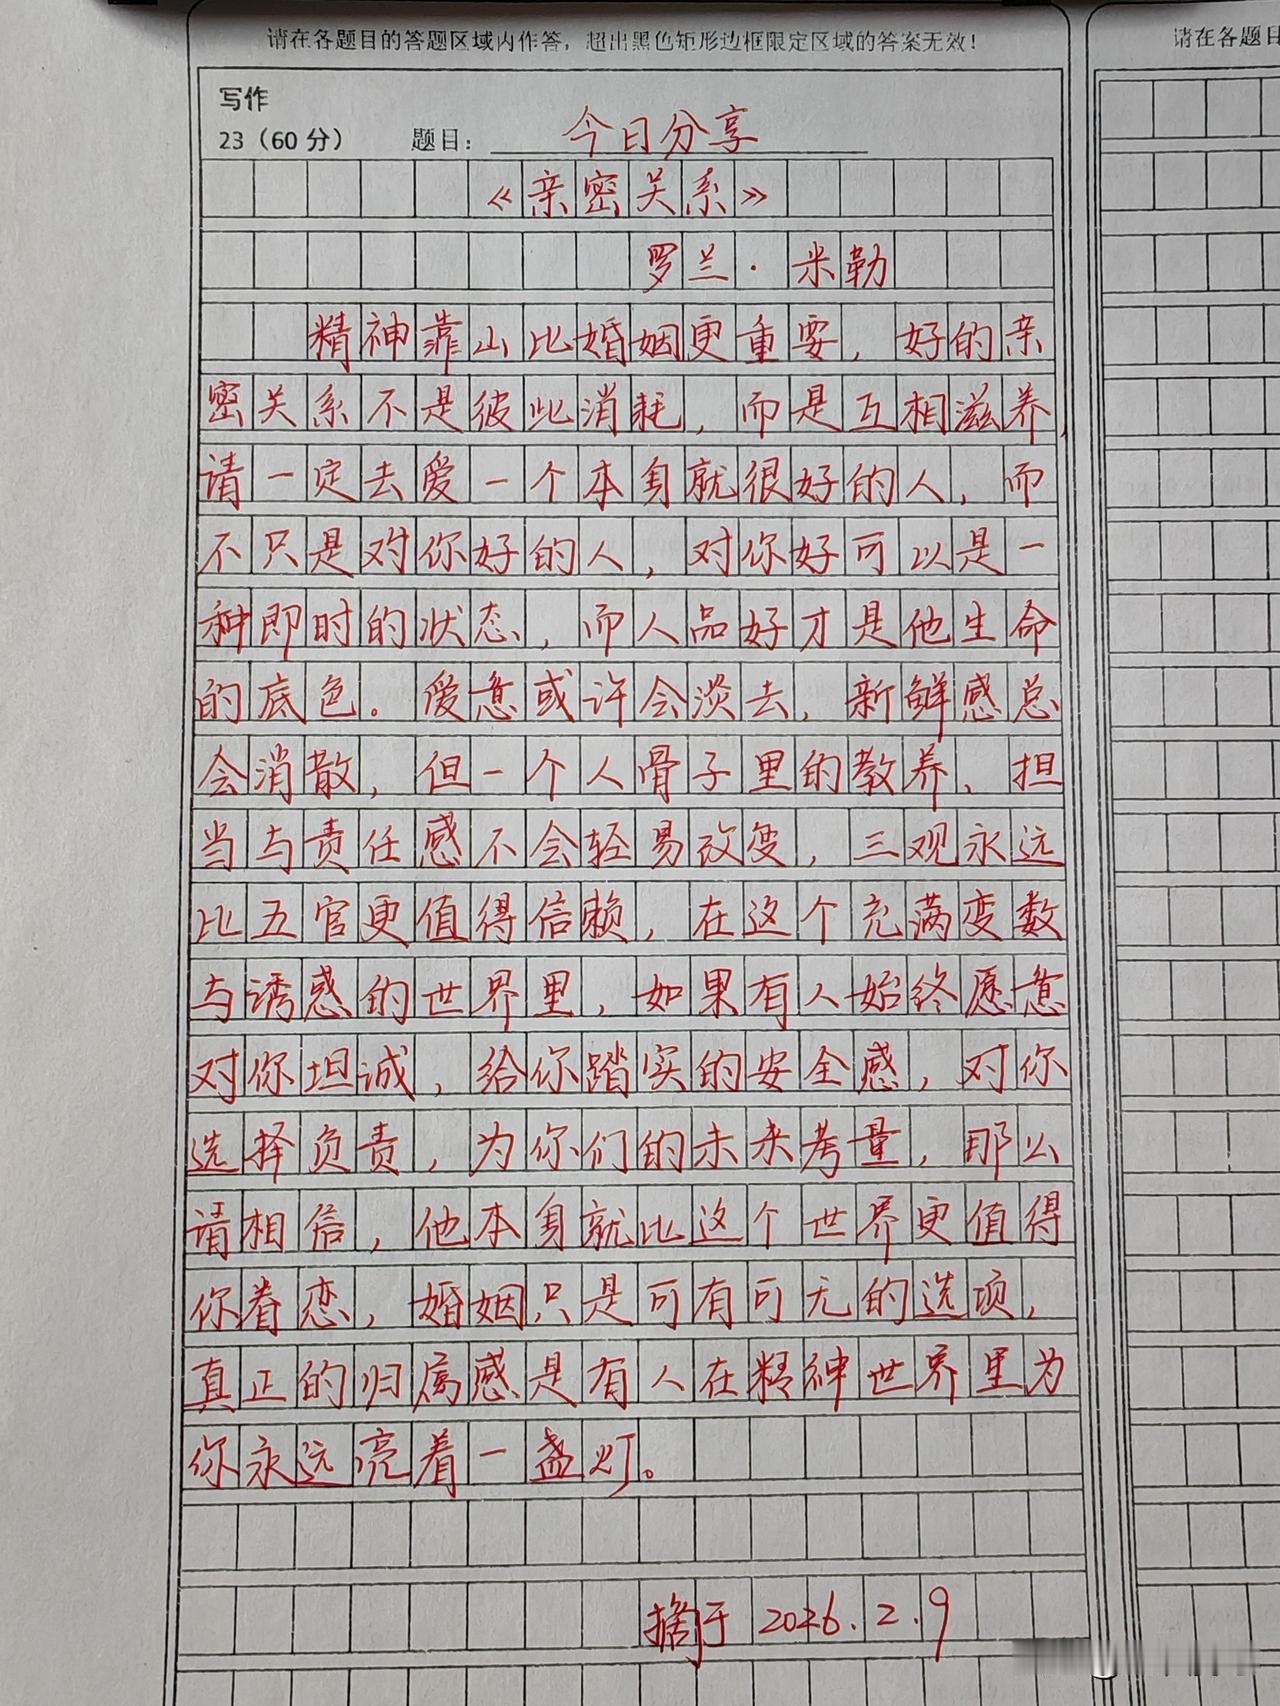 请在各题目的答题区域内作答，超出黑色矩形边框限定区域的答案无效！
请在各题目
写作
23（60分） 题目：今日分享
《亲密关系》
罗兰·米勒
精神靠山比婚姻更重要，好的亲
密关系不是彼此消耗，而是互相滋养，
请一定去爱一个本身就很好的人，而
不只是对你好的人，对你好可以是一
种即时的状态，而人品好才是他生命
的底色。爱意或许会淡去，新鲜感总
会消散，但一个人骨子里的教养、担
当与责任感不会轻易改变，三观永远
比五官更值得信赖，在这个充满变数
与诱惑的世界里，如果有人始终愿意
对你坦诚，给你踏实的安全感，对你
选择负责，为你们的未来考量，那么
请相信，他本身就比这个世界更值得
你眷恋，婚姻只是可有可无的选项，
真正的归属感是有人在精神世界里为
你永远亮着一盏灯。
摘于 2026.2.9